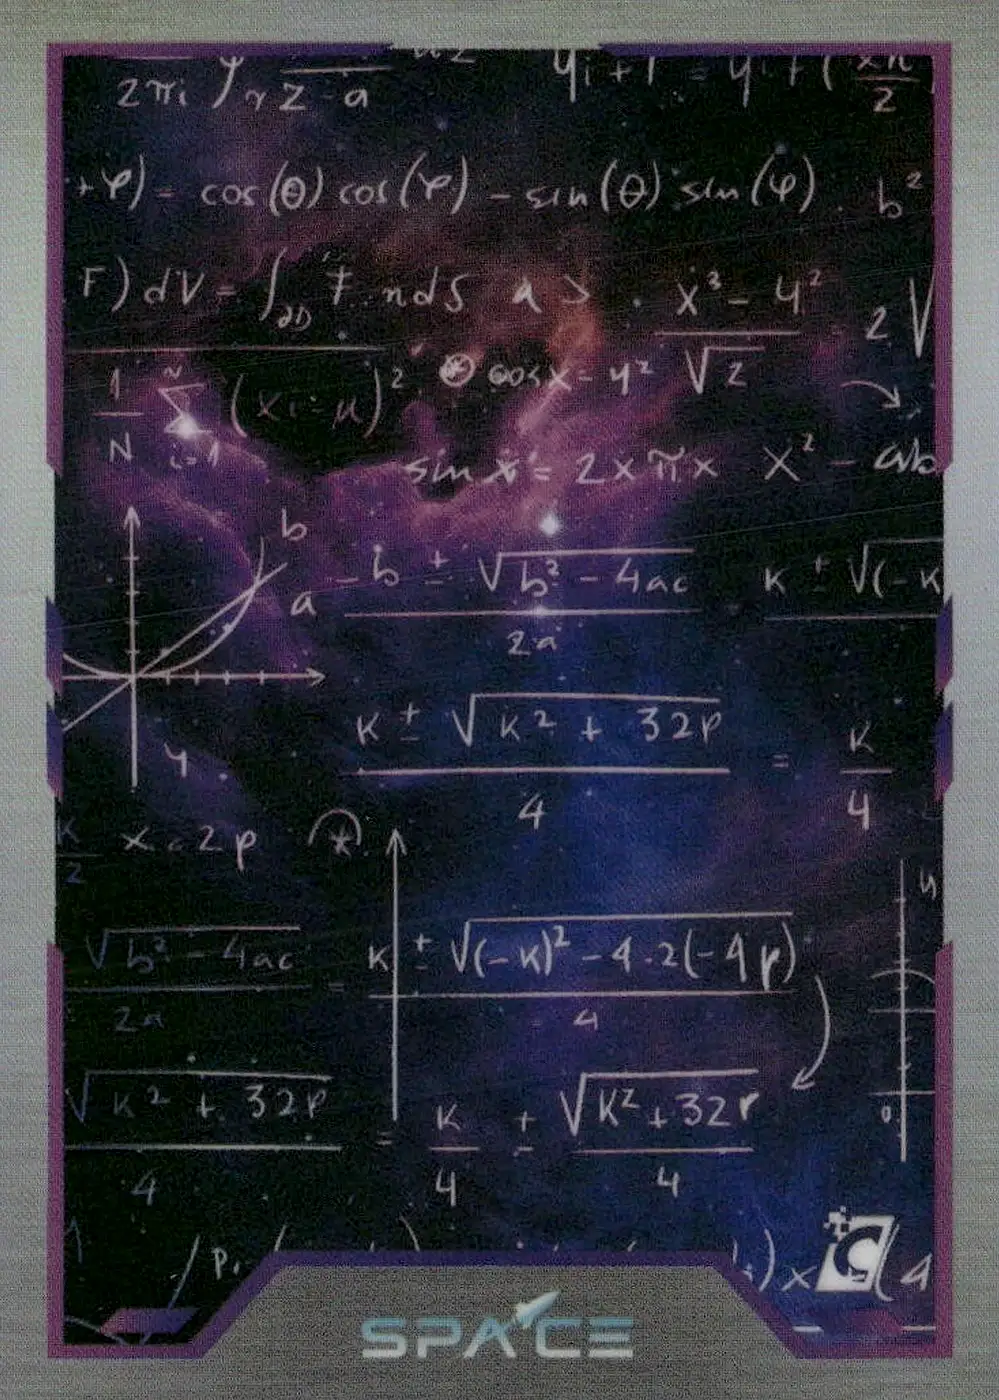 2πi ∫γ z - a yi+1 = yi + ( 2
+φ) = cos(θ)cos(φ) - sin(θ) sin(φ) b²
F) dV = ∫∂D F n dS a > x³ - y² 2√
√z
1 N Σ i=1 (xi - μ)² cos x = y²
sin x = 2xπx x² - ab
b
a
-b ± √b² - 4ac K ± √(-K
2a
y
K ± √K² + 32p = K
4 4
K
2 x = 2p
y
√b² - 4ac = K ± √(-K)² - 4·2(-4p)
2a 4
√K² + 32p = K ± √K² + 32p
4 4 4
0
P. ) x (4
C
SPACE